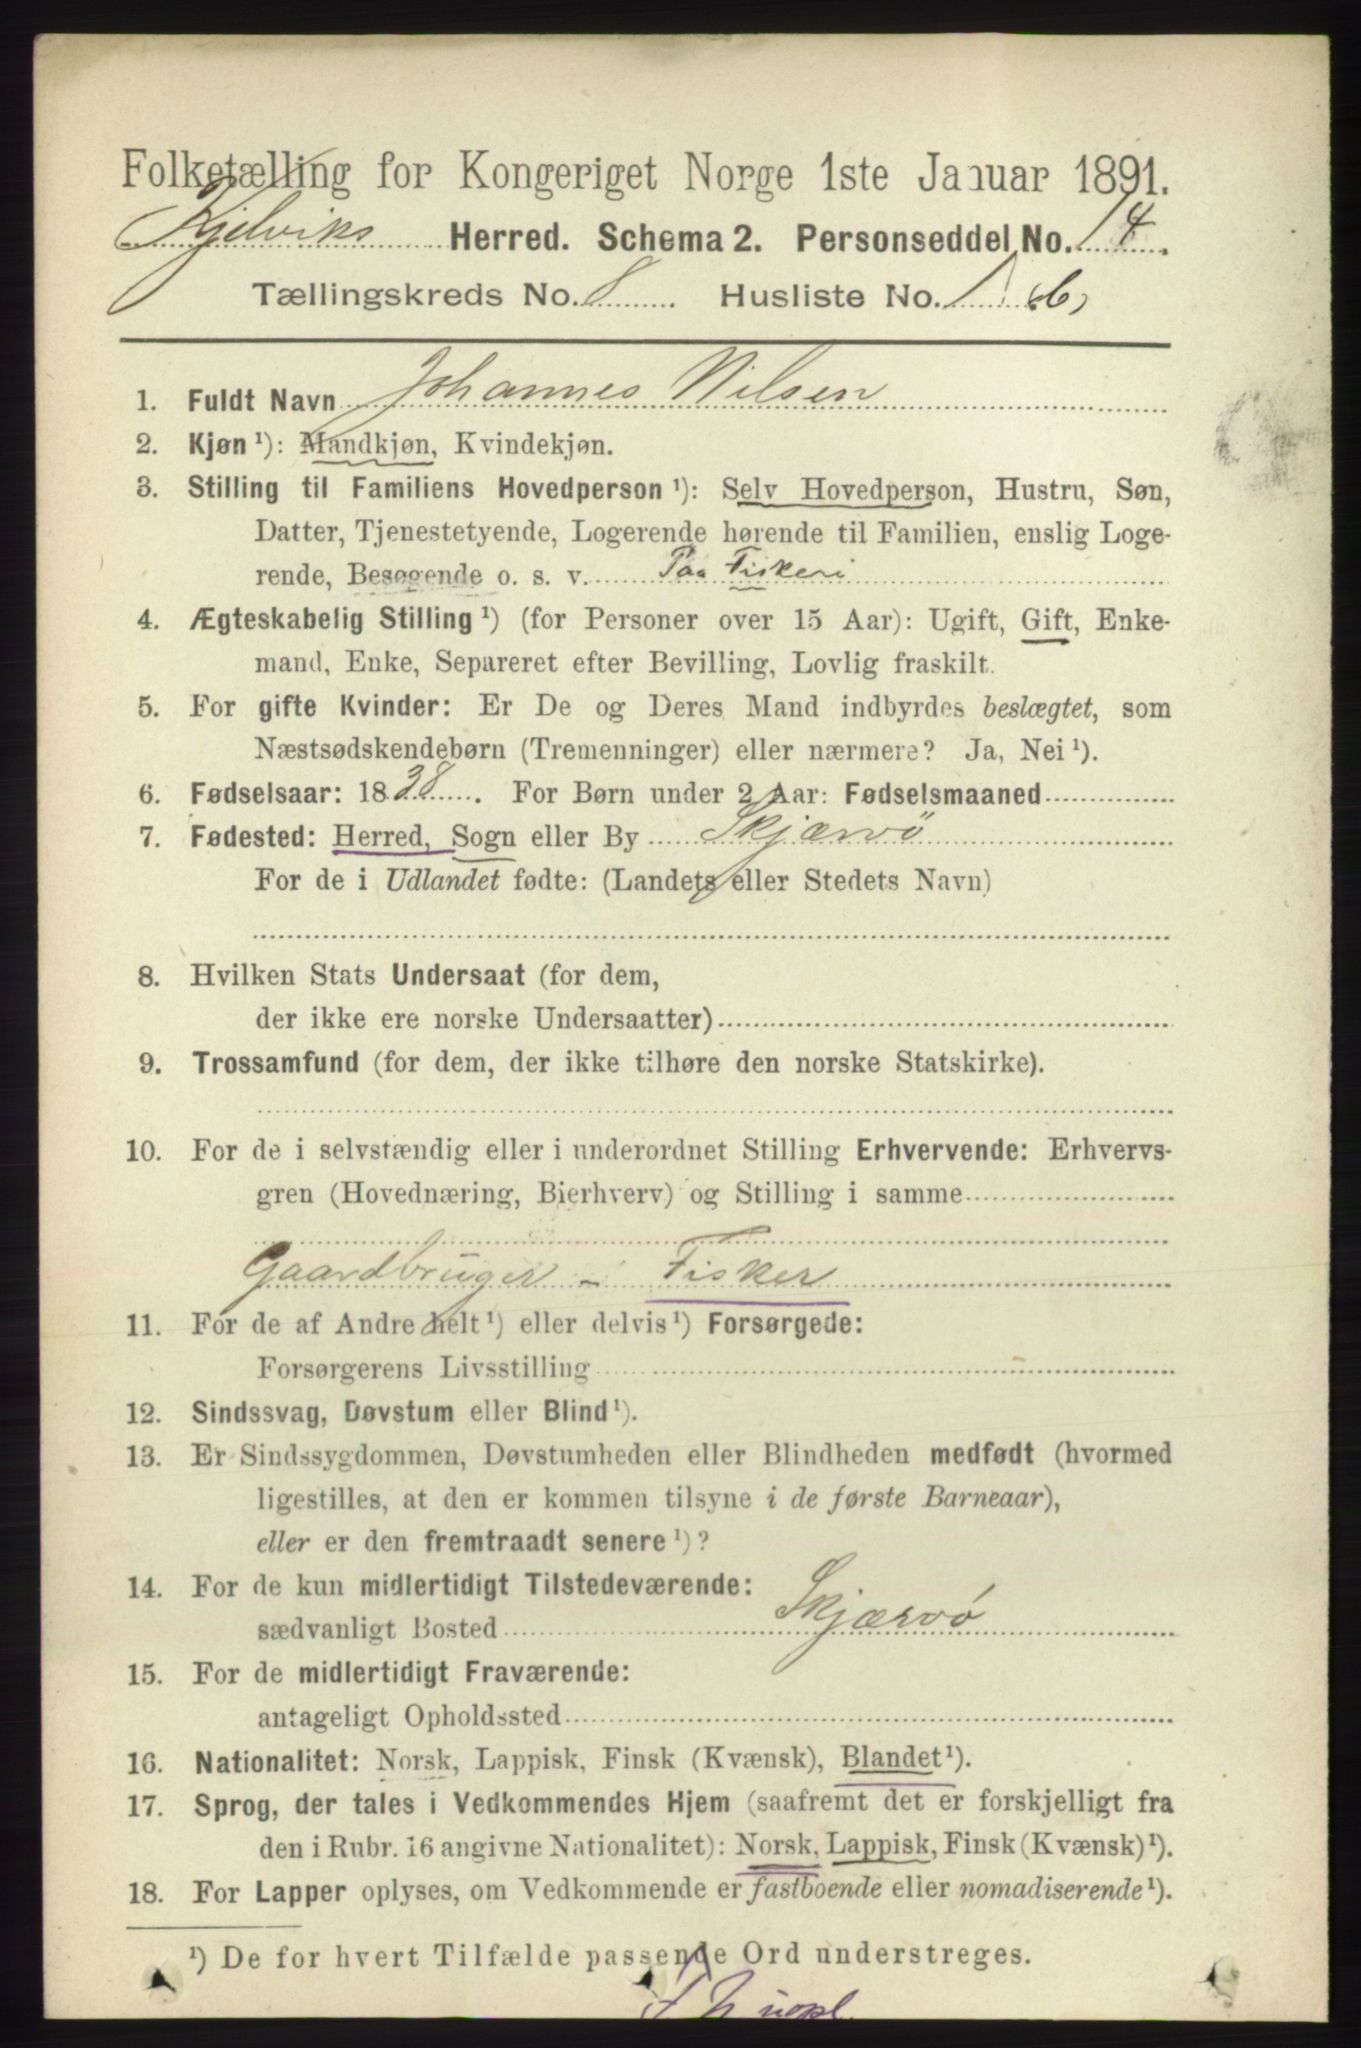 Folketælling for Kongeriget Norge 1ste Januar 1891.
Kjelviks Herred. Schema 2. Personseddel No. 14.
Tællingskreds No. 8 Husliste No. 1
1. Fuldt Navn Johannes Nilsen
2. Kjøn ¹): Mandkjøn, Kvindekjøn.
3. Stilling til Familiens Hovedperson ¹): Selv Hovedperson, Hustru, Søn,
Datter, Tjenestetyende, Logerende hørende til Familien, enslig Loge-
rende, Besøgende o. s. v. Paa Fiskeri
4. Ægteskabelig Stilling ¹) (for Personer over 15 Aar): Ugift, Gift, Enke-
mand, Enke, Separeret efter Bevilling, Lovlig fraskilt.
5. For gifte Kvinder: Er De og Deres Mand indbyrdes beslægtet, som
Næstsødskendebørn (Tremenninger) eller nærmere? Ja, Nei ¹).
6. Fødselsaar: 1838. For Børn under 2 Aar: Fødselsmaaned
7. Fødested: Herred, Sogn eller By Skjærvö
For de i Udlandet fødte: (Landets eller Stedets Navn)
8. Hvilken Stats Undersaat (for dem,
der ikke ere norske Undersaatter)
9. Trossamfund (for dem, der ikke tilhøre den norske Statskirke).
10. For de i selvstændig eller i underordnet Stilling Erhvervende: Erhvervs-
gren (Hovednæring, Bierhverv) og Stilling i samme
Gaardbruger - Fisker
11. For de af Andre helt ¹) eller delvis ¹) Forsørgede:
Forsørgerens Livsstilling
12. Sindssvag, Døvstum eller Blind ¹).
13. Er Sindssygdommen, Døvstumheden eller Blindheden medfødt (hvormed
ligestilles, at den er kommen tilsyne i de første Barneaar),
eller er den fremtraadt senere ¹)?
14. For de kun midlertidigt Tilstedeværende:
sædvanligt Bosted Skjærvö
15. For de midlertidigt Fraværende:
antageligt Opholdssted
16. Nationalitet: Norsk, Lappisk, Finsk (Kvænsk), Blandet ¹).
17. Sprog, der tales i Vedkommendes Hjem (saafremt det er forskjelligt fra
den i Rubr. 16 angivne Nationalitet): Norsk, Lappisk, Finsk (Kvænsk) ¹).
18. For Lapper oplyses, om Vedkommende er fastboende eller nomadiserende ¹).
¹) De for hvert Tilfælde passende Ord understreges.